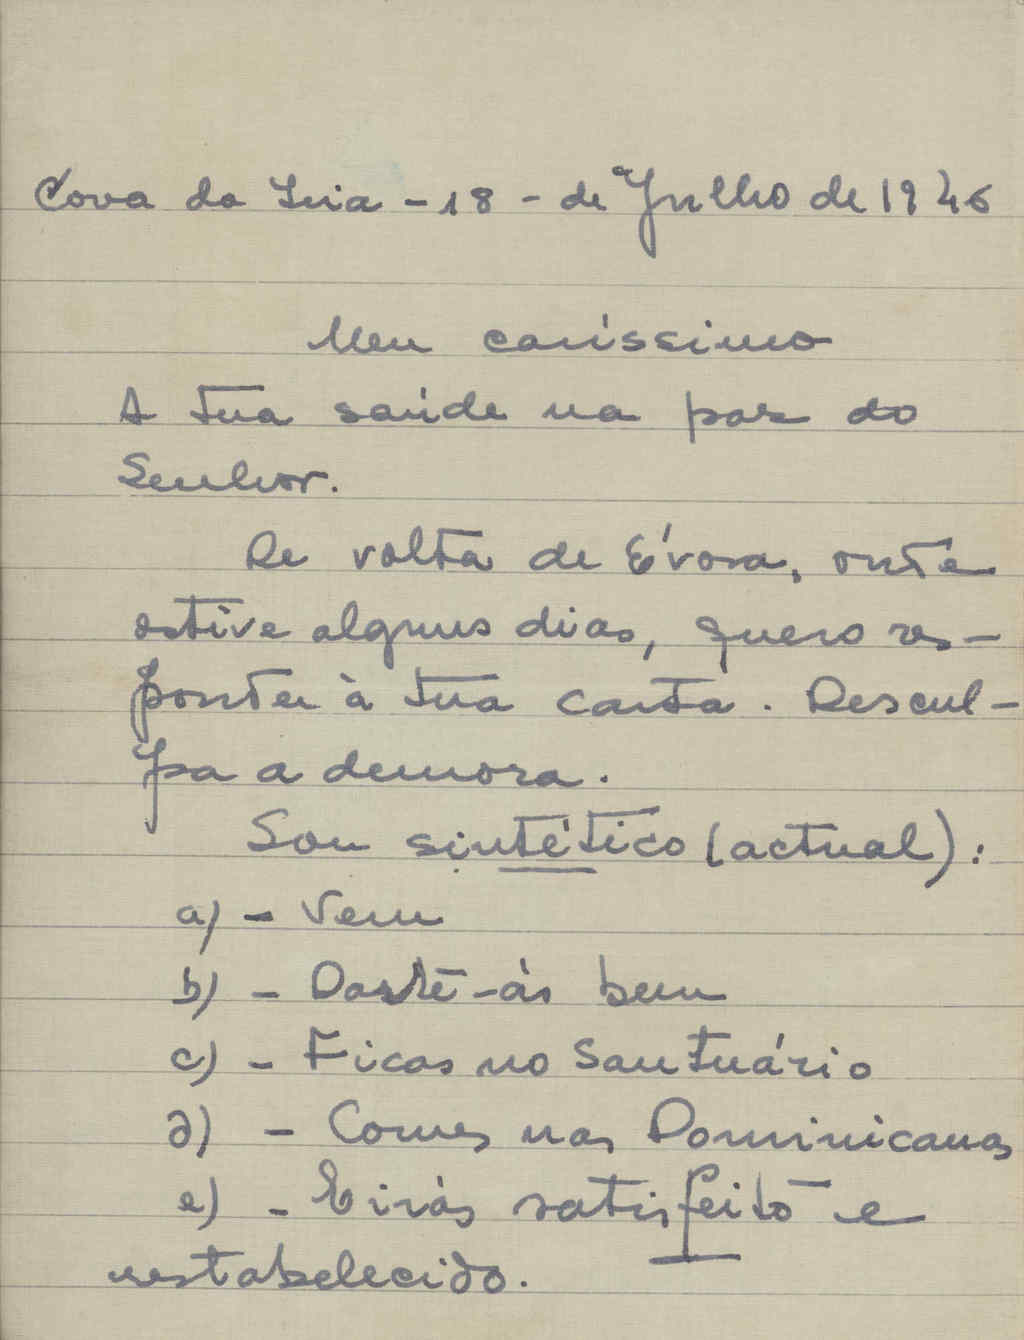 Cova da Iria - 18 - de Julho de 1946
Meu caríssimo
A tua saúde na paz do
Senhor.
De volta de Évora, onde
estive alguns dias, quero res-
ponder à tua carta. Descul-
pa a demora.
Sou sintético (actual):
a) - Vem
b) - Darte-ás bem
c) - Ficas no Santuário
d) - Comes nas Dominicanas
e) - E irás satisfeito e
restabelecido.